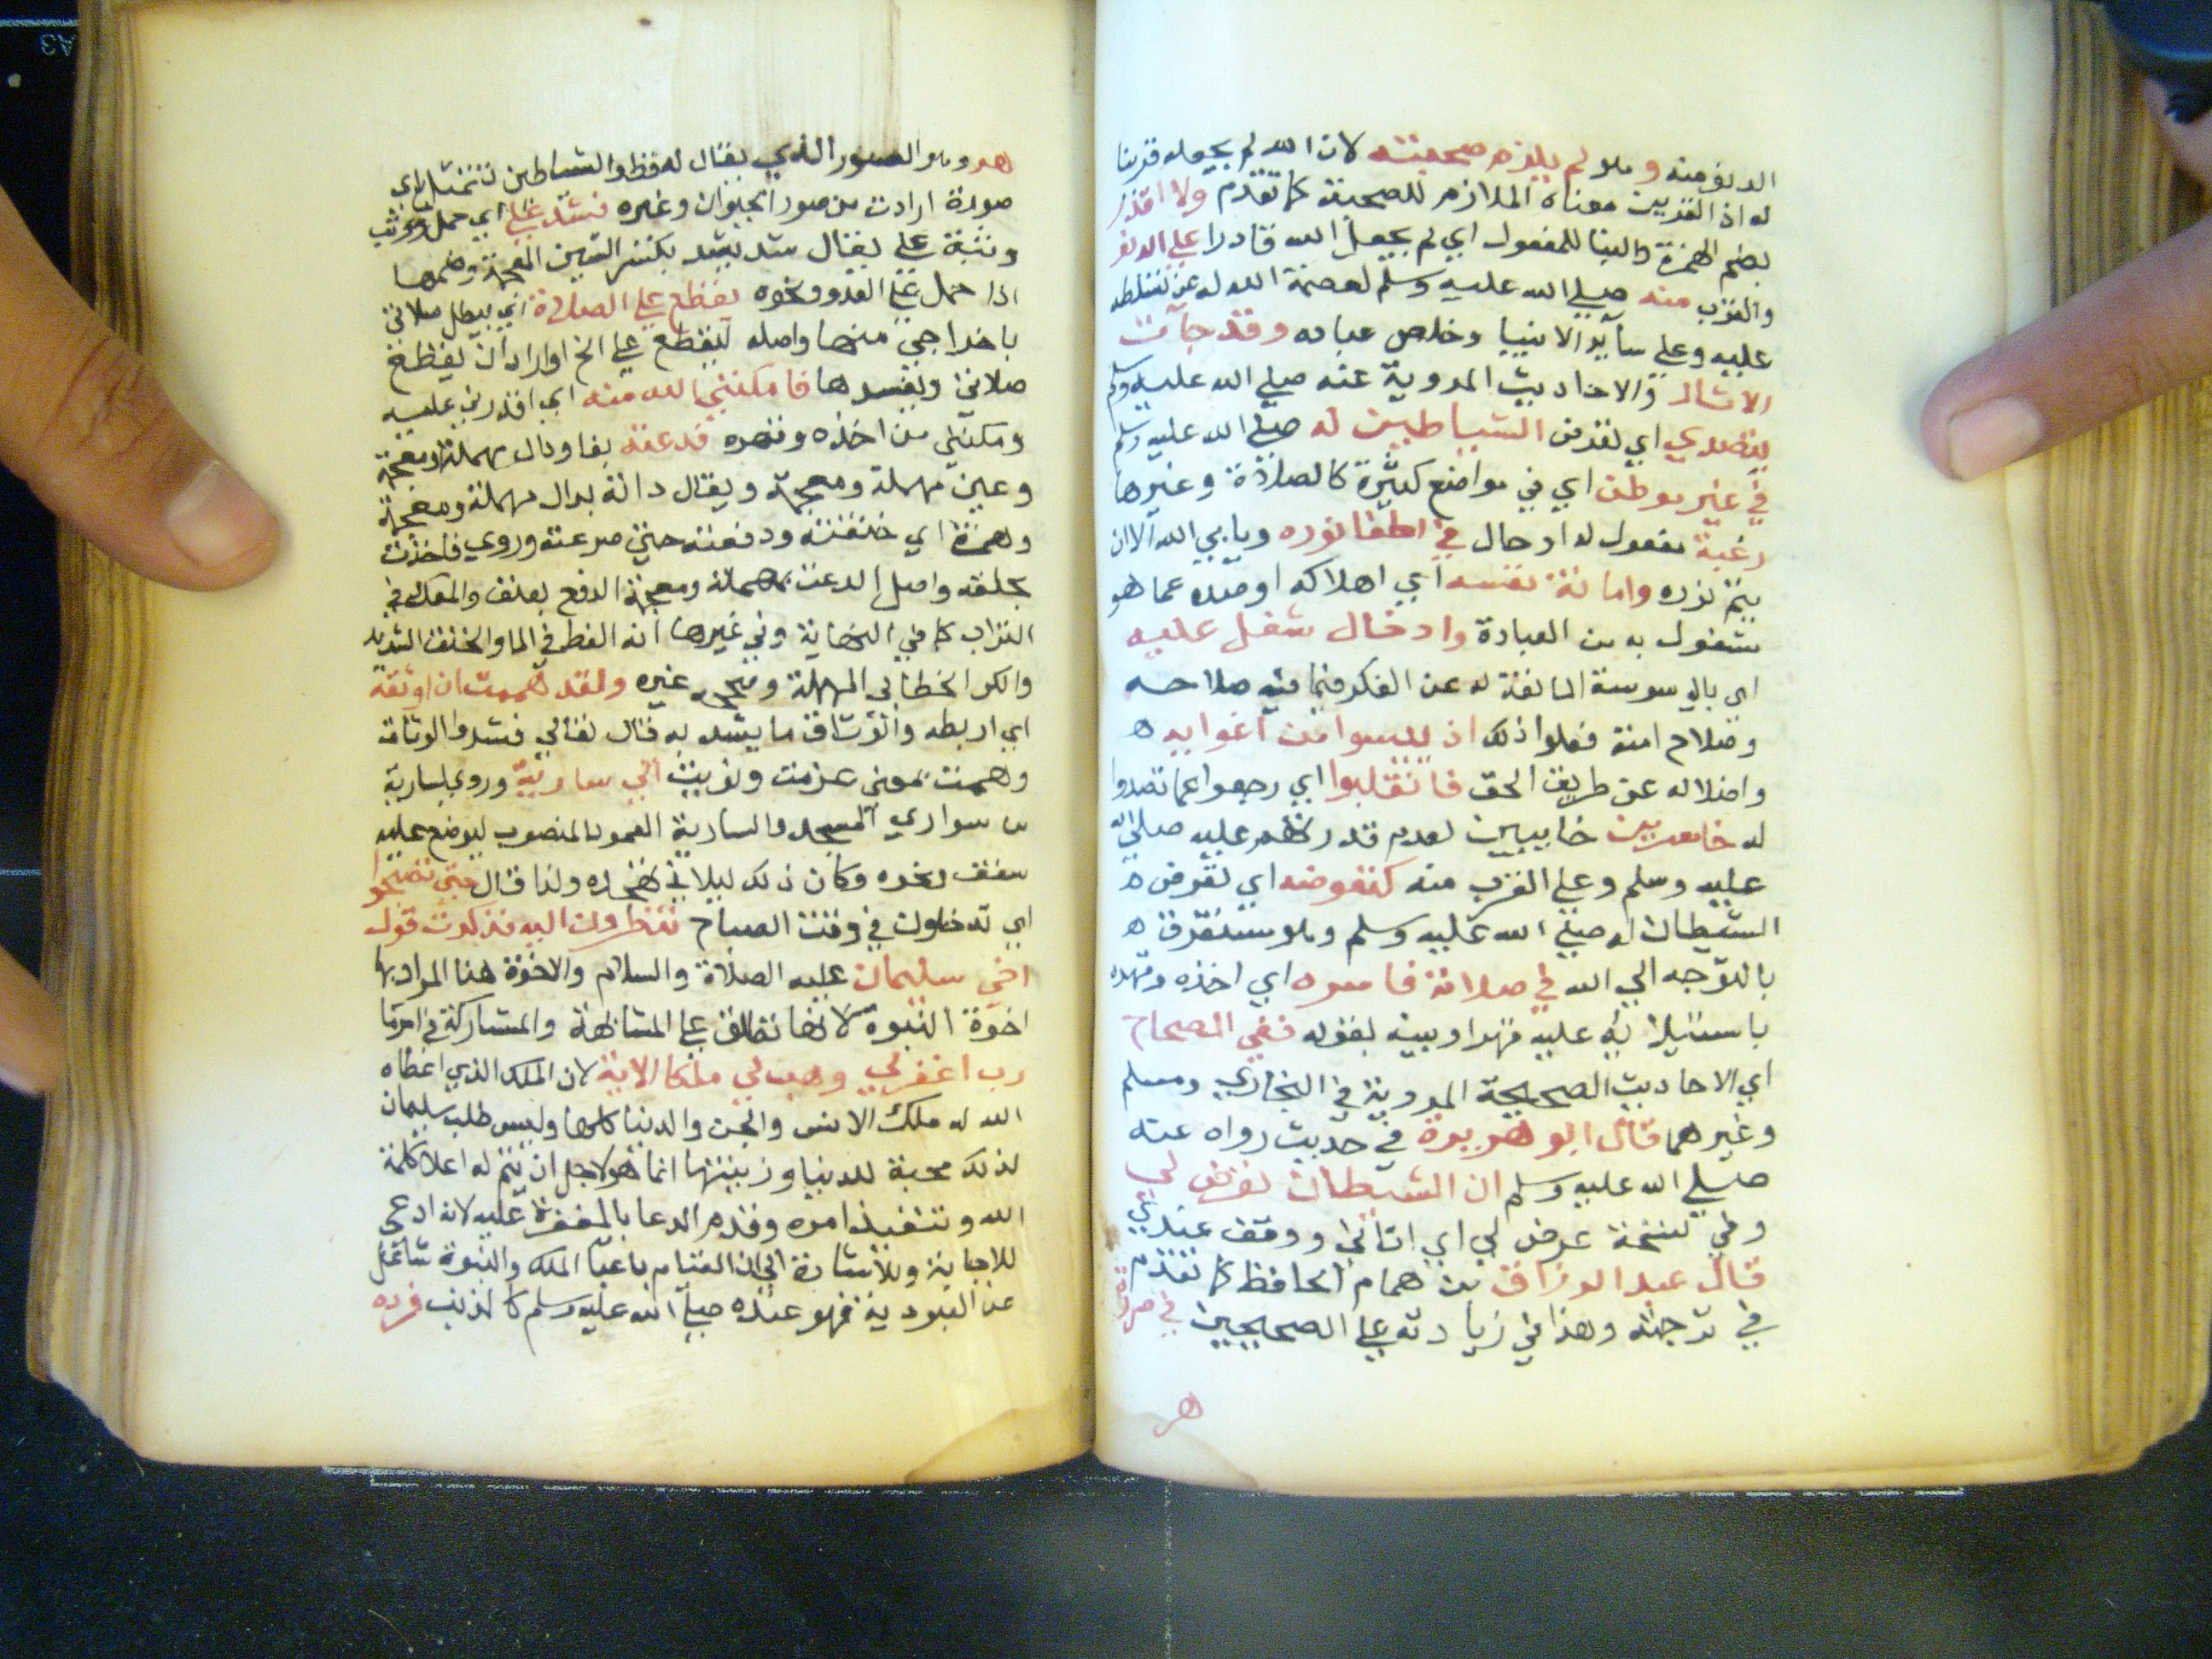 الدنو منه وهو لم يلزم صحبته لان الله لم يجعله قرينا
له اذ القرين معناه الملازم للصحبة كما تقدم ولا اقدر
بضم الهمزة والبنا للمفعول اي لم يجعل الله قادرا علي الدنو
والقرب منه صلي الله عليه وسلم لعصمة الله له عن تسلطه
عليه وعلي سآير الانبيا وخلص عباده وقد جآت
الاثار والاحاديث المروية عنه صلي الله عليه وسلم
بتصدي اي تعرض الشياطين له صلي الله عليه وسلم
في غير موطن اي في مواضع كثيرة كالصلاة وغيرها
رغبة مفعول له او حال في اطفا نوره ويابي الله الا ان
يتم نوره واماتة نفسه اي اهلاكه او صده عما هو
مشغول به من العبادة وادخال شغل عليه
اي بالوسوسة المانعة له عن الفكر فيما فيه صلاحه
وصلاح امته فعلوا ذلك اذ يىسوا من اغوايه ه
واضلاله عن طريق الحق فانقلبوا اي رجعوا عما تصدوا
له خاسرين خايبين لعدم قدرتهم عليه صلي الله
عليه وسلم وعلي القرب منه كتعرضه اي تعرض ه
الشيطان له صلي الله عليه وسلم وهو مستغرق ه
بالتوجه الي الله في صلاته فاسره اي اخذه وقهره
باستيلايه عليه قهرا وبينه بقوله ففي الصحاح
اي الاحاديث الصحيحة المروية في البخاري ومسلم
وغيرهما قال ابو هريرة في حديث رواه عنه
صلي الله عليه وسلم ان الشيطان تعرض لي
وفي نسخة عرض لي اي اتاني ووقف عندي
قال عبد الرزاق بن همام الحافظ كما تقدم
في ترجمته وهذا في زيادته علي الصحيحين في صورة
هر
هر وهو السنور الذي يقال له قط والشياطين تتمثل باي
صورة ارادت من صور الحيوان وغيره فشد علي اي حمل ووثب
وثبة علي يقال شد يشد بكسر الشين المعجمة وضمها
اذا حمل علي العدو ونحوه يقطع علي الصلاة اي يبطل صلاتي
باخراجي منها واصله ليقطع علي الخ او اراد ان يقطع
صلاتي ويفسدها فامكنني الله منه اي اقدرني عليه
ومكنني من اخذه وقهره فدعته بفا ودال مهملة ومعجمة
وعين مهملة ومعجمة ويقال دانة بدال مهملة ومعجمة
وهمزة اي خنقته ودفعته حتي صرعته وروي فاخذت
بحلقه واصل الدعت بمهملة ومعجمة الدفع بعنف والمعك في
التراب كما في النهاية وفي غيرها انه الغط في الما والخنق الشديد
وانكر الخطابي المهملة وصححه غيره ولقد هممت ان اوثقه
اي اربطه والوثاق ما يشد به قال تعالي فشدوا الوثاق
وهممت بمعني عزمت ونويت الي سارية وروي بسارية
من سواري المسجد والسارية العمود المنصوب ليوضع عليه
سقف ونحوه وكان ذلك ليلا في تهجده ولذا قال حتي تصبحوا
اي تدخلون في وقت الصباح تنظرون اليه فذكرت قول
اخي سليمان عليه الصلاة والسلام والاخوة هنا المراد بها
اخوة النبوة لانها تطلق علي المشابهة والمشاركة في امر ما
رب اغفر لي وهب لي ملكا الاية لان الملك الذي اعطاه
الله له ملك الانس والجن والدنيا كلها وليس طلب سليمان
لذلك محبة للدنيا وزينتها انما هو لاجل ان يتم له اعلا كلمة
الله وتنفيذ امره وقدم الدعا بالمغفرة عليه لانه ادعي
للاجابة وللاشارة الي ان القيام باعبا الملك والنبوة شاغل
عن العبودية فهو عنده صلي الله عليه وسلم كالذنب فرده